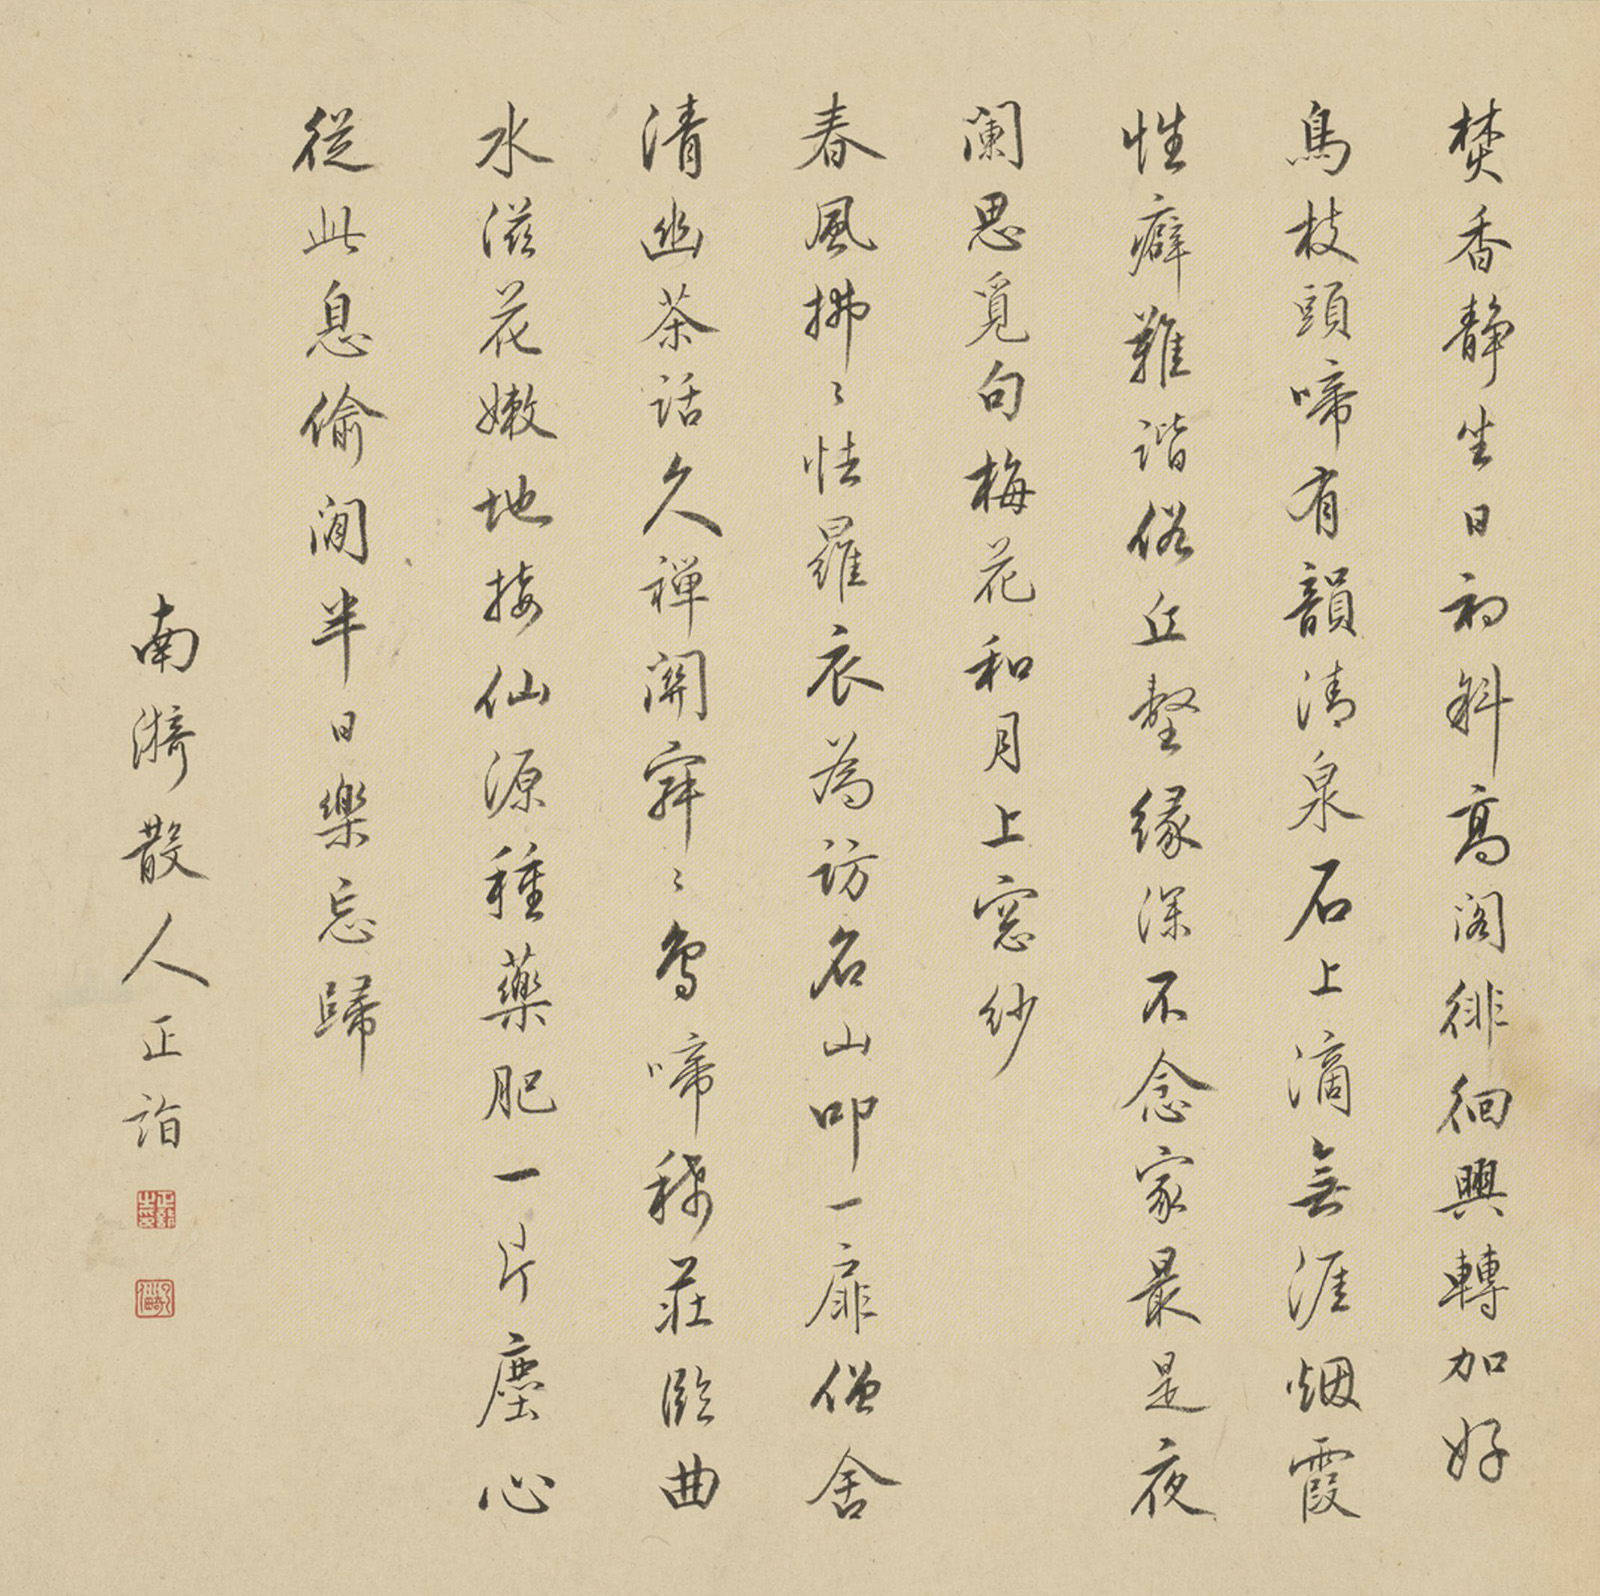 焚香靜坐日初斜高閣徘徊興轉加好
鳥枝頭啼有韻清泉石上滴無涯烟霞
性癖難諧俗丘壑緣深不念家最是夜
闌思覓句梅花和月上窓紗
春風拂〻怯羅衣為訪名山叩一扉僧舍
清幽茶話久禪關寂〻鳥啼稀莊臨曲
水滋花嫩地接仙源種藥肥一片塵心
從此息偷閒半日樂忘歸
南漪散人正詣